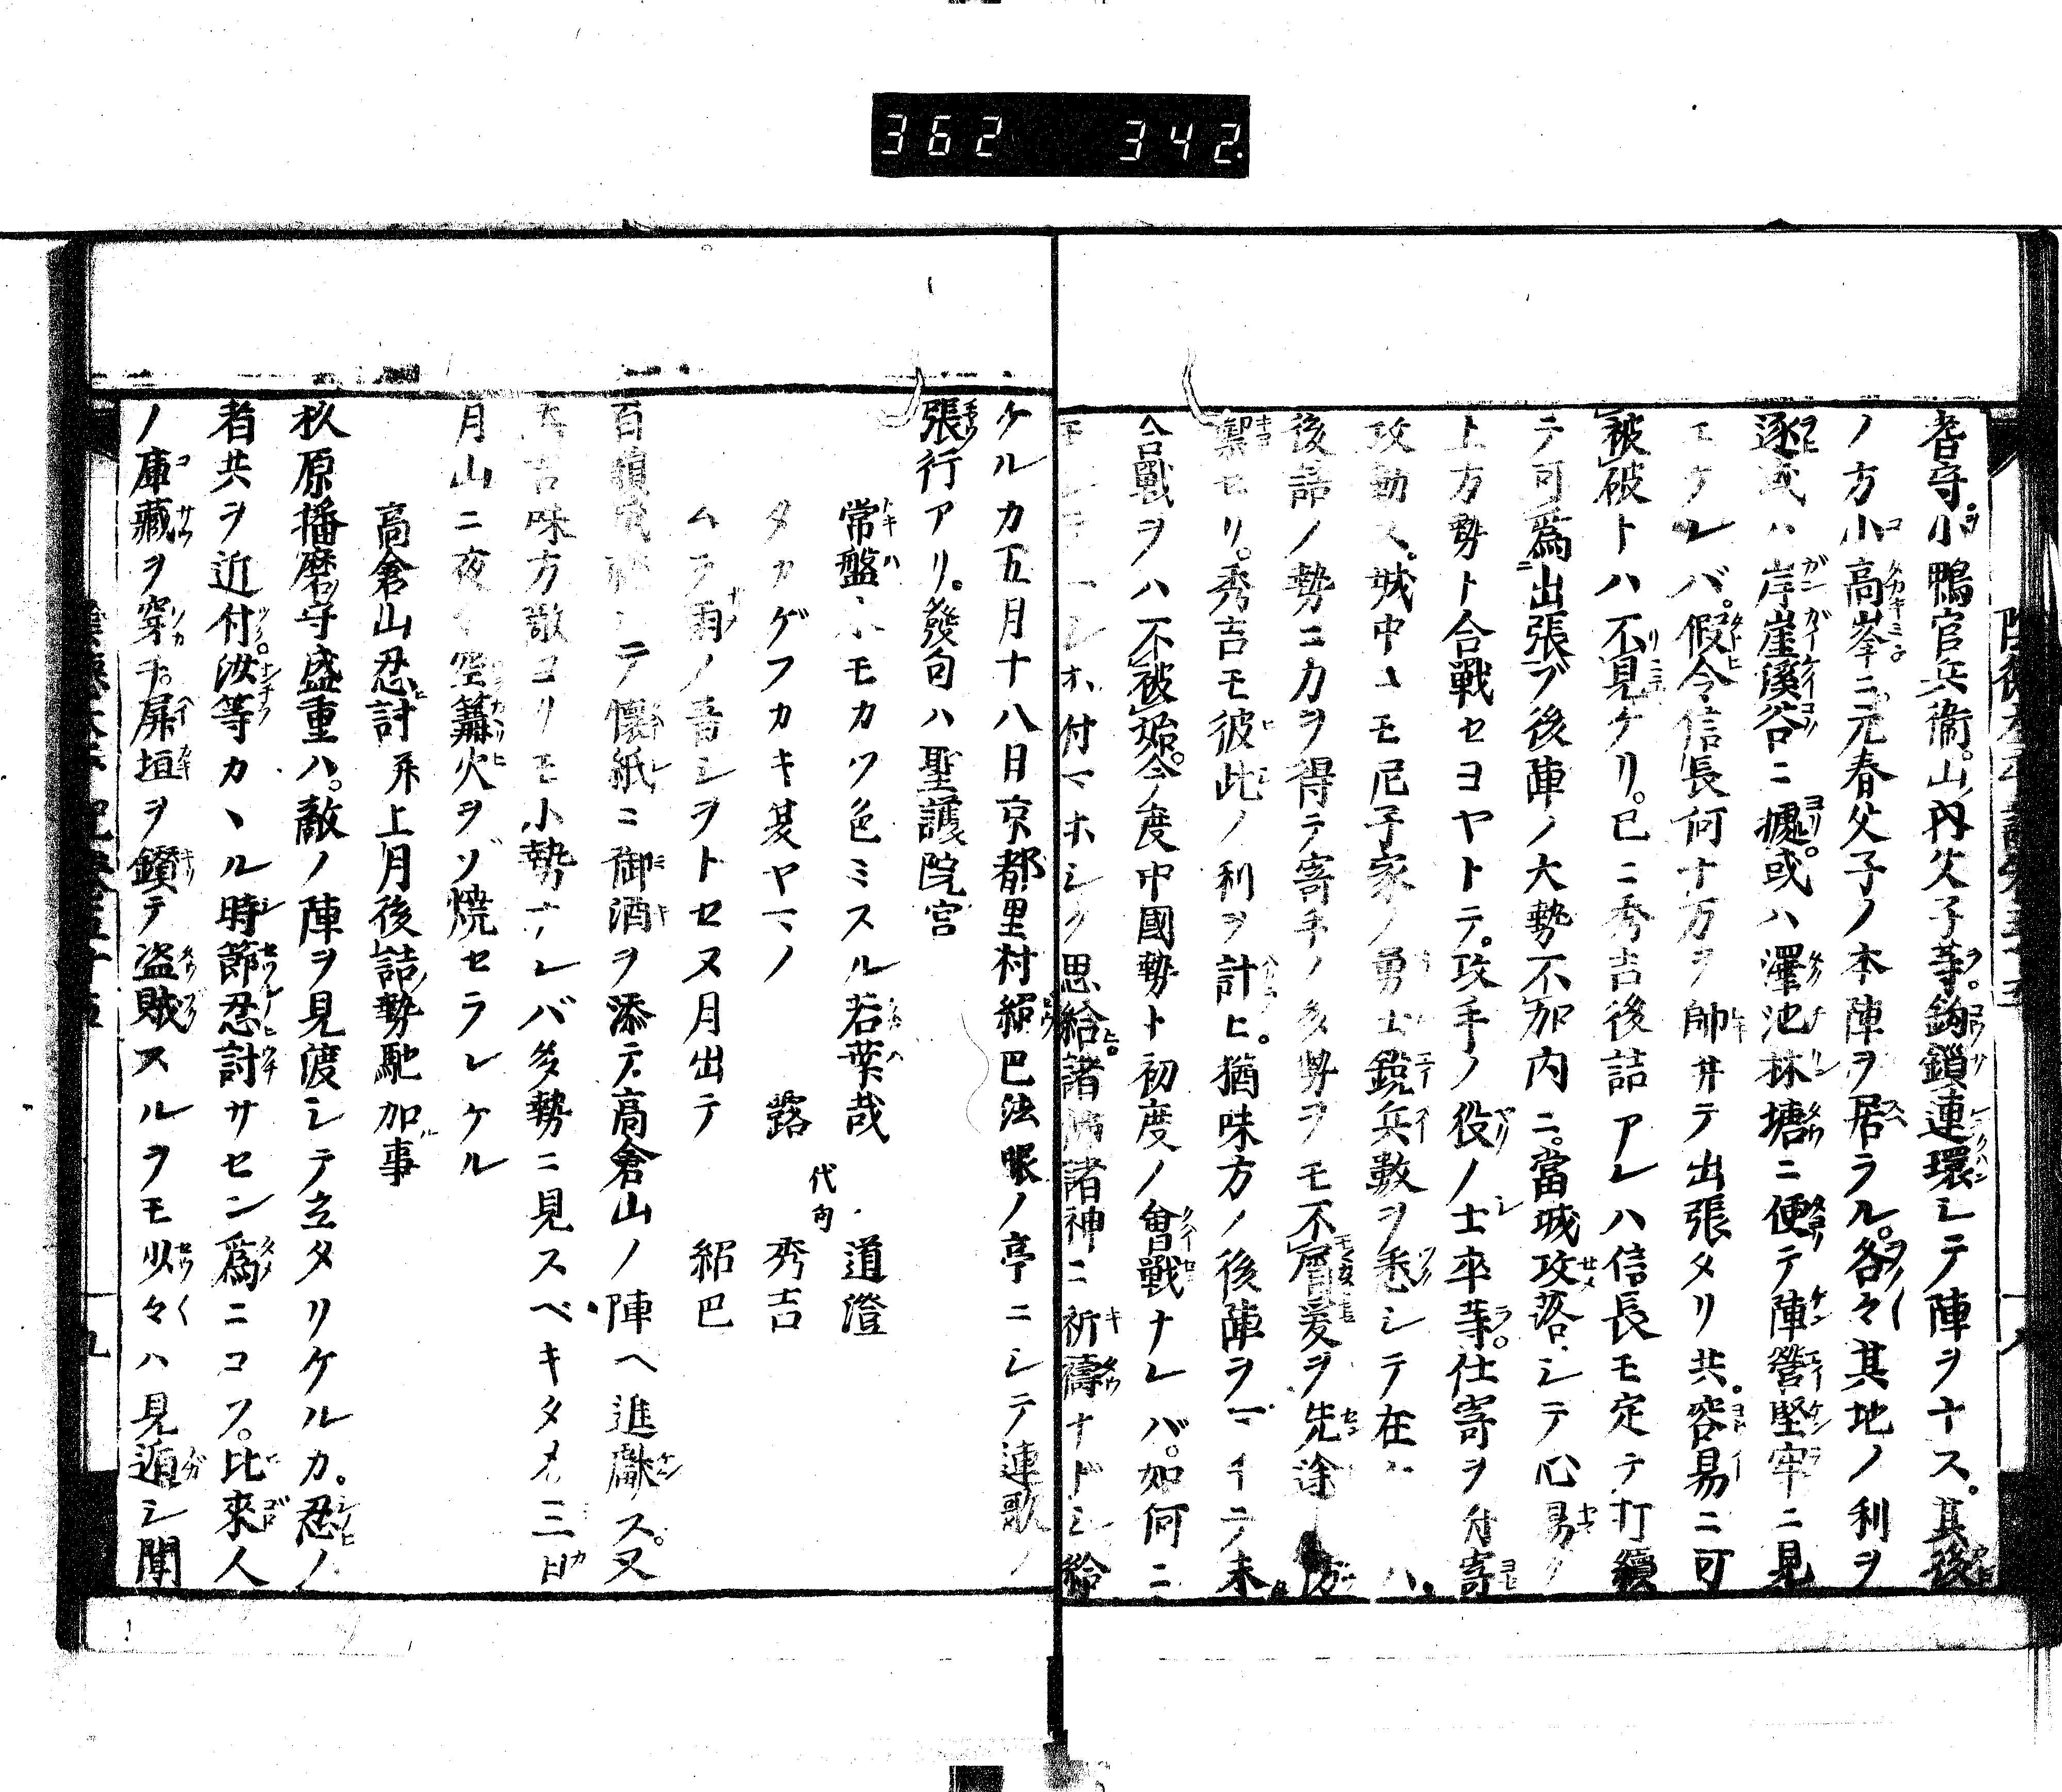 362 342.
耆守。小鴨官兵衞。山内父子等。鉤鎖連環シテ陣ヲナス。其後
ノ方小高峯ニ元春父子ノ本陣ヲ居ラル。各々其地ノ利ヲ
逐或ハ岸崖溪谷ニ據。或ハ澤池林塘ニ便テ陣營堅牢ニ見
エケレバ。假令信長何十万ヲ帥井テ出張タリ共。容易ニ可
被破トハ不見ケリ。已ニ秀吉後詰アレハ信長モ定テ打續
テ可爲出張ブ後陣ノ大勢不加内ニ。當城攻落シテ心易ク
上方勢ト合戦セヨヤトテ。攻手ノ役ノ士卒等。仕寄ヲ付寄
攻動ス。城中ニモ尼子家ノ勇士鋭兵數ヲ悉シテ在ハ
後詰ノ勢ニ力ヲ得テ寄手ノ多勢ヲモ不屑爰ヲ先途
禦セリ。秀吉モ彼此ノ利ヲ計ヒ。猶味方ノ後陣ヲマイテ未
合戰ヲハ不被始。今度中國勢ト初度ノ會戰ナレバ。如何ニ
付マホシク思給ヒ。諸佛諸神ニ祈禱ナドシ給
ケルカ五月十八日京都里村紹巴法眼ノ亭ニシテ連歌ノ
張行アリ。發句ハ聖護院宮
常盤木モカツ色ミスル若葉哉 道澄
タカゲフカキ夏ヤマノ露 代句 秀吉
ムラ雨ノ音シヲトセヌ月出テ 紹巴
百韻成就シテ懷紙ニ御酒ヲ添テ高倉山ノ陣ヘ進獻ス。又
秀吉味方敵ヨリモ小勢ナレバ多勢ニ見スベキタメ三日
月山ニ夜々空篝火ヲゾ焼セラレケル
高倉山忍討并上月後詰勢馳加事
杦原播磨守盛重ハ。敵ノ陣ヲ見渡シテ立タリケルカ。忍ノ
者共ヲ近付。汝等カヽル時節忍討サセン爲ニコス。比來人
ノ庫藏ヲ穿チ。屏垣ヲ鑽テ盗賊スルヲモ少々ハ見遁シ聞